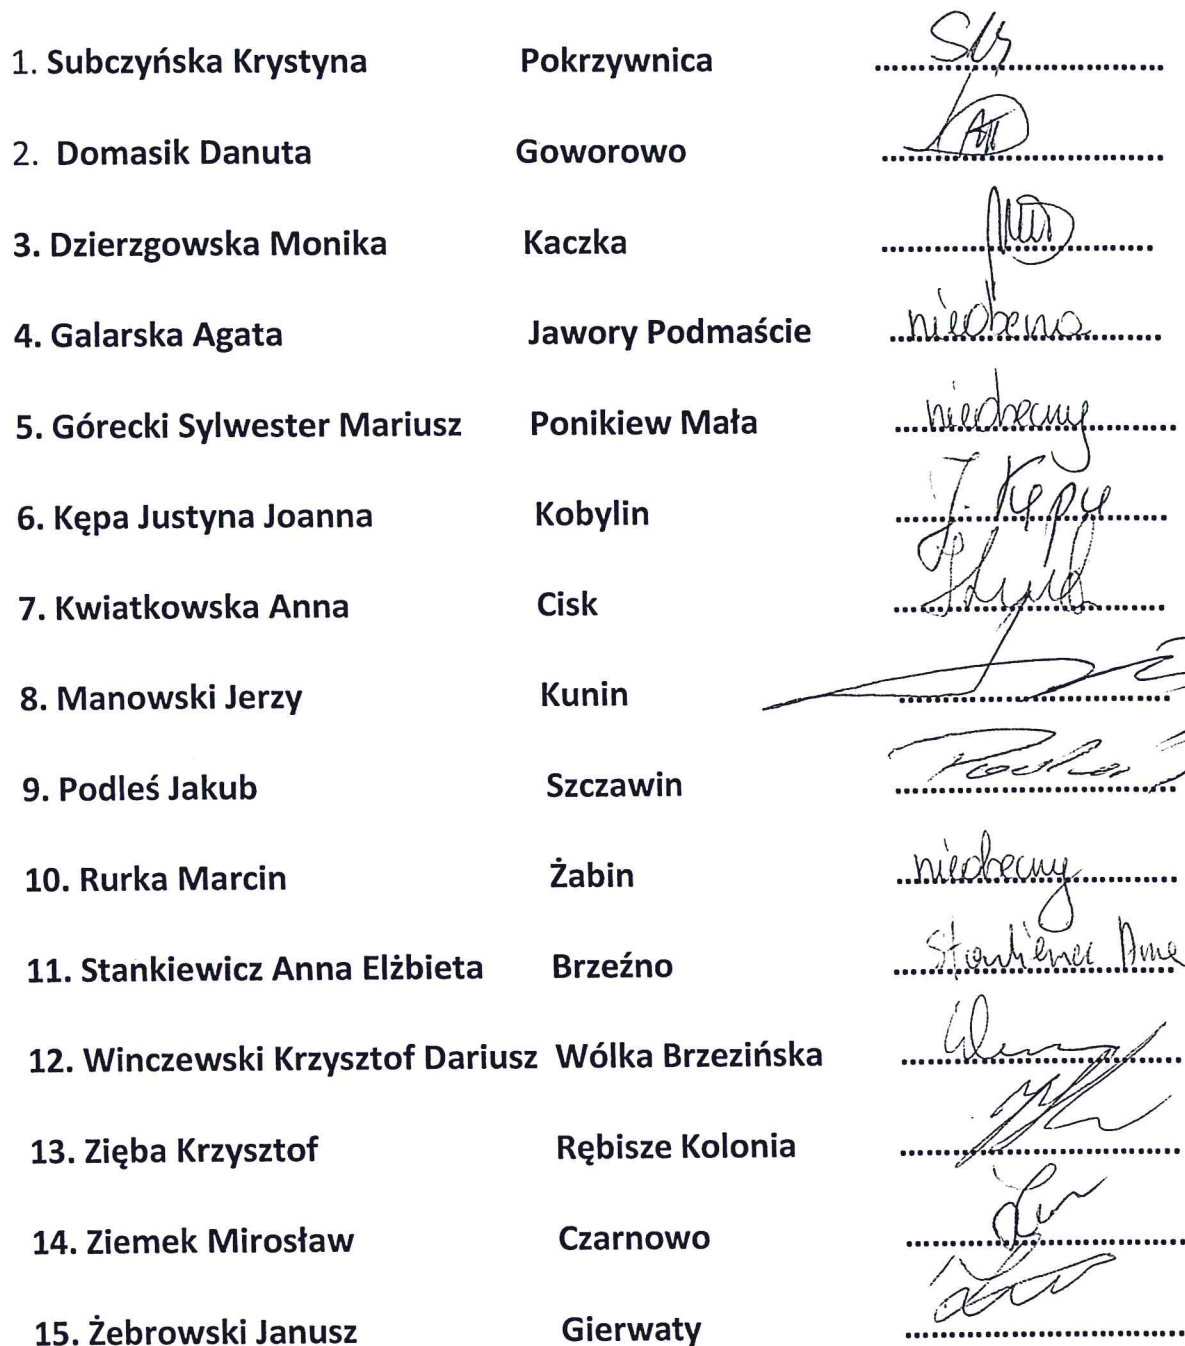 1. Subczyńska Krystyna Pokrzywnica
2. Domasik Danuta Goworowo
3. Dzierzgowska Monika Kaczka
4. Galarska Agata Jawory Podmaście nieobecna
5. Górecki Sylwester Mariusz Ponikiew Mała nieobecny
6. Kępa Justyna Joanna Kobylin J. Kępa
7. Kwiatkowska Anna Cisk
8. Manowski Jerzy Kunin
9. Podleś Jakub Szczawin
10. Rurka Marcin Żabin nieobecny
11. Stankiewicz Anna Elżbieta Brzeźno Stankiewicz Anna
12. Winczewski Krzysztof Dariusz Wólka Brzezińska
13. Zięba Krzysztof Rębisze Kolonia
14. Ziemek Mirosław Czarnowo
15. Żebrowski Janusz Gierwaty